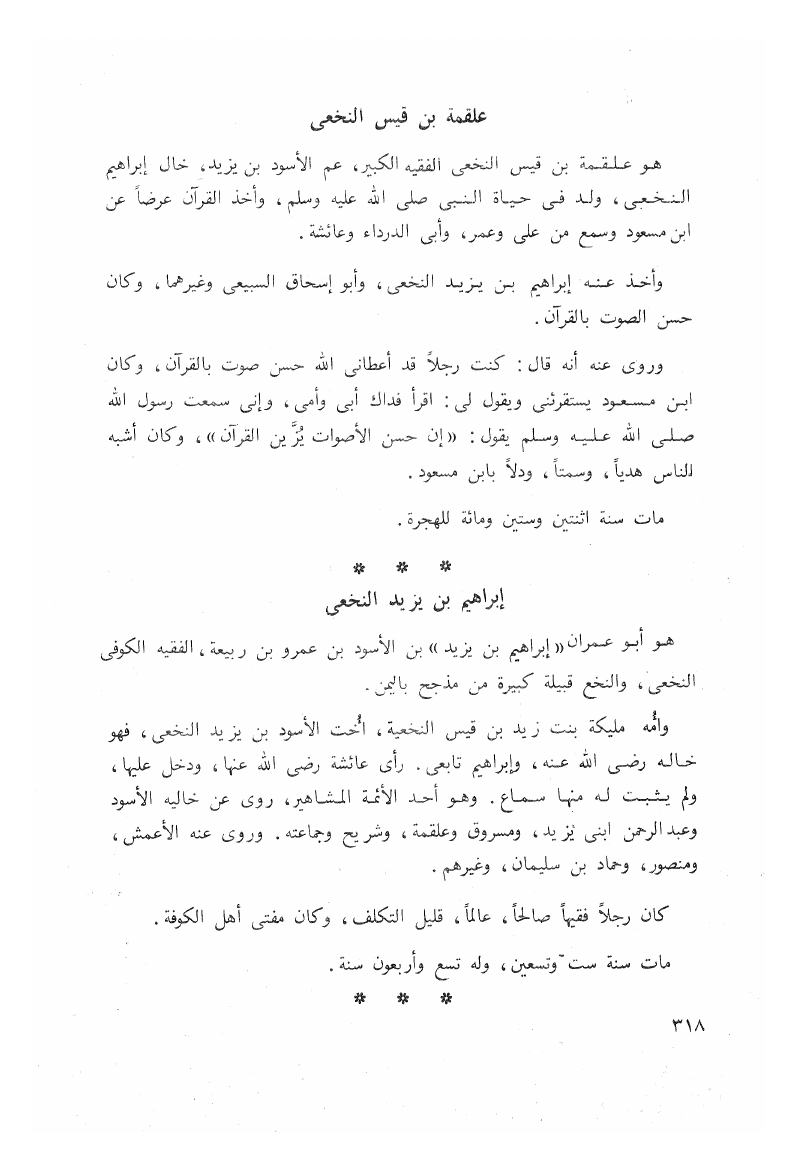 علقمة بن قيس النخعى
هو علقمة بن قيس النخعى الفقيه الكبير، عم الأسود بن يزيد، خال إبراهيم
النخعى، ولد فى حياة النبى صلى الله عليه وسلم، وأخذ القرآن عرضاً عن
ابن مسعود وسمع من على وعمر، وأبى الدرداء وعائشة.
وأخذ عنه إبراهيم بن يزيد النخعى، وأبو إسحاق السبيعى وغيرهما، وكان
حسن الصوت بالقرآن.
وروى عنه أنه قال: كنت رجلاً قد أعطانى الله حسن صوت بالقرآن، وكان
ابن مسعود يستقرئنى ويقول لى: اقرأ فداك أبى وأمى، وإنى سمعت رسول الله
صلى الله عليه وسلم يقول: «إن حسن الأصوات يُزَّين القرآن»، وكان أشبه
الناس هدياً، وسمتاً، ودلاً بابن مسعود.
مات سنة اثنتين وستين ومائة للهجرة.
* * *
إبراهيم بن يزيد النخعى
هو أبو عمران «إبراهيم بن يزيد» بن الأسود بن عمرو بن ربيعة، الفقيه الكوفى
النخعى، والنخع قبيلة كبيرة من مذجح باليمن.
وأُمه مليكة بنت زيد بن قيس النخعية، أُخت الأسود بن يزيد النخعى، فهو
خاله رضى الله عنه، وإبراهيم تابعى. رأى عائشة رضى الله عنها، ودخل عليها،
ولم يثبت له منها سماع. وهو أحد الأئمة المشاهير، روى عن خاليه الأسود
وعبد الرحمن ابنى يزيد، ومسروق وعلقمة، وشريح وجماعته. وروى عنه الأعمش،
ومنصور، وحماد بن سليمان، وغيرهم.
كان رجلاً فقيهاً صالحاً، عالماً، قليل التكلف، وكان مفتى أهل الكوفة.
مات سنة ست وتسعين، وله تسع وأربعون سنة.
* * *
٣١٨